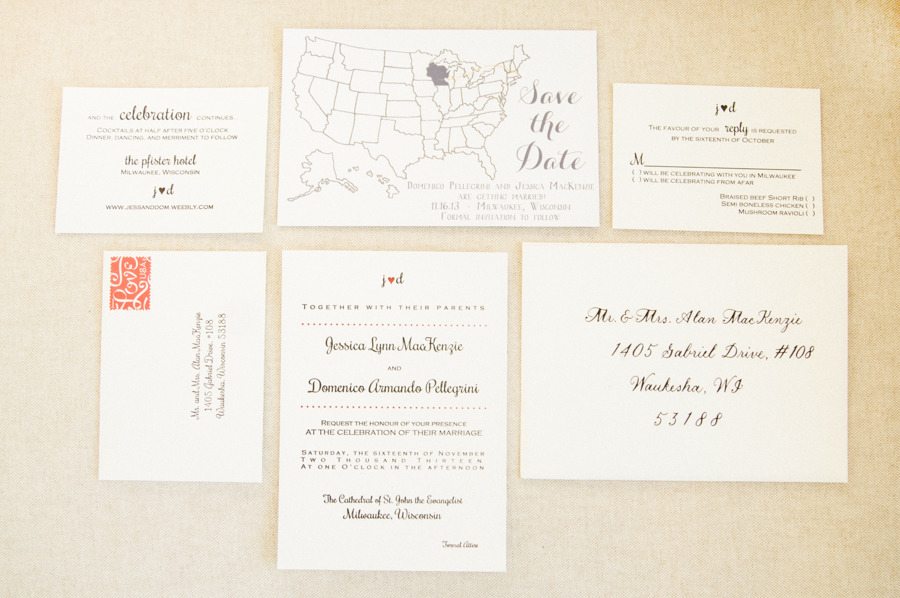 AND THE celebration CONTINUES...
COCKTAILS AT HALF AFTER FIVE O'CLOCK
DINNER, DANCING, AND MERRIMENT TO FOLLOW
the pfister hotel
MILWAUKEE, WISCONSIN
j♥d
WWW.JESSANDDOM.WEEBLY.COM
Save
the
Date
DOMENICO PELLEGRINI AND JESSICA MACKENZIE
ARE GETTING MARRIED!
11.16.13 - MILWAUKEE, WISCONSIN
FORMAL INVITATION TO FOLLOW
j♥d
THE FAVOUR OF YOUR reply IS REQUESTED
BY THE SIXTEENTH OF OCTOBER
M
( ) WILL BE CELEBRATING WITH YOU IN MILWAUKEE
( ) WILL BE CELEBRATING FROM AFAR
BRAISED BEEF SHORT RIB ( )
SEMI BONELESS CHICKEN ( )
MUSHROOM RAVIOLI ( )
Love
USA
Mr. and Mrs. Alan MacKenzie
1405 Gabriel Drive, #108
Waukesha, Wisconsin
53188
j♥d
TOGETHER WITH THEIR PARENTS
Jessica Lynn MacKenzie
AND
Domenico Armando Pellegrini
REQUEST THE HONOUR OF YOUR PRESENCE
AT THE CELEBRATION OF THEIR MARRIAGE
SATURDAY, THE SIXTEENTH OF NOVEMBER
TWO THOUSAND THIRTEEN
AT ONE O'CLOCK IN THE AFTERNOON
The Cathedral of St. John the Evangelist
Milwaukee, Wisconsin
Formal Attire
Mr. & Mrs. Alan MacKenzie
1405 Gabriel Drive, #108
Waukesha, WI
53188